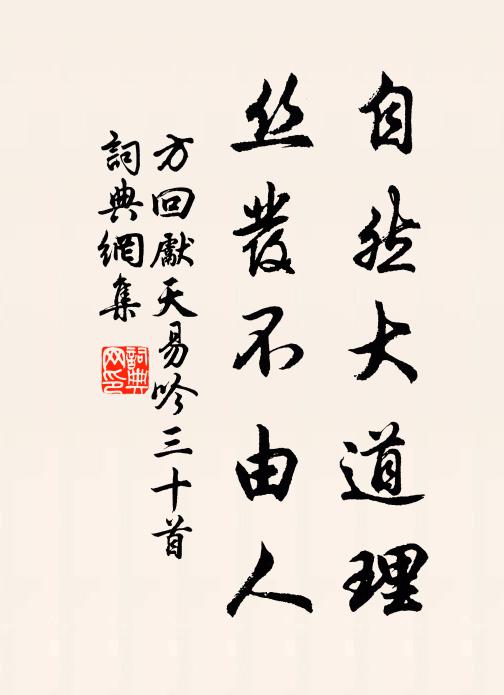 自然大道理
丝發不由人
方回獻天易吟三十首
詞典網集
詞典网印